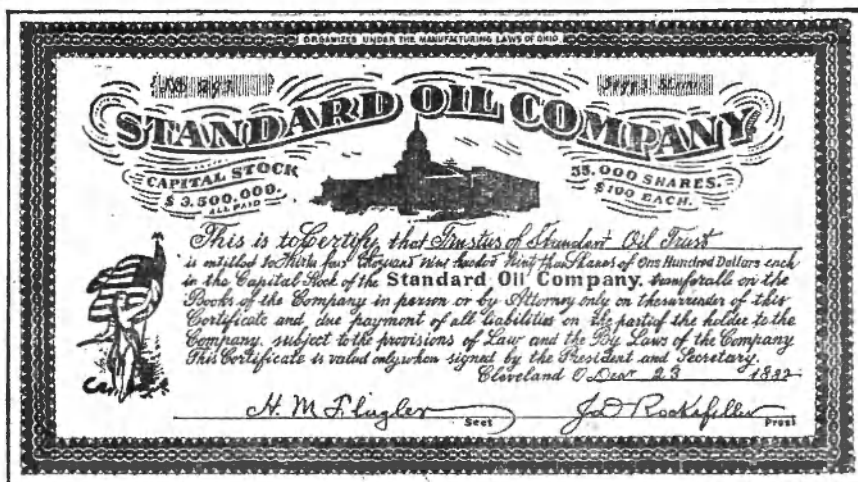 ORGANIZED UNDER THE MANUFACTURING LAWS OF OHIO
STANDARD OIL COMPANY
CAPITAL STOCK
$ 3,500,000.
ALL PAID
35,000 SHARES.
$ 100 EACH.
This is to Certify, that Trustus of Standart Oil Trust
is entitled to Thirty four Thousand nine hundred Shares of One Hundred Dollars each
in the Capital Stock of the Standard Oil Company, transferalle on the
Books of the Company in person or by Attorney only on the surrender of this
Certificate and due payment of all liabilities on the part of the holder to the
Company, subject to the provisions of Law and the By Laws of the Company
This Certificate is valud only when signed by the President and Secretary.
Cleveland O 23 1882
H. M Flugler Sect
J D Rockefeller Prest